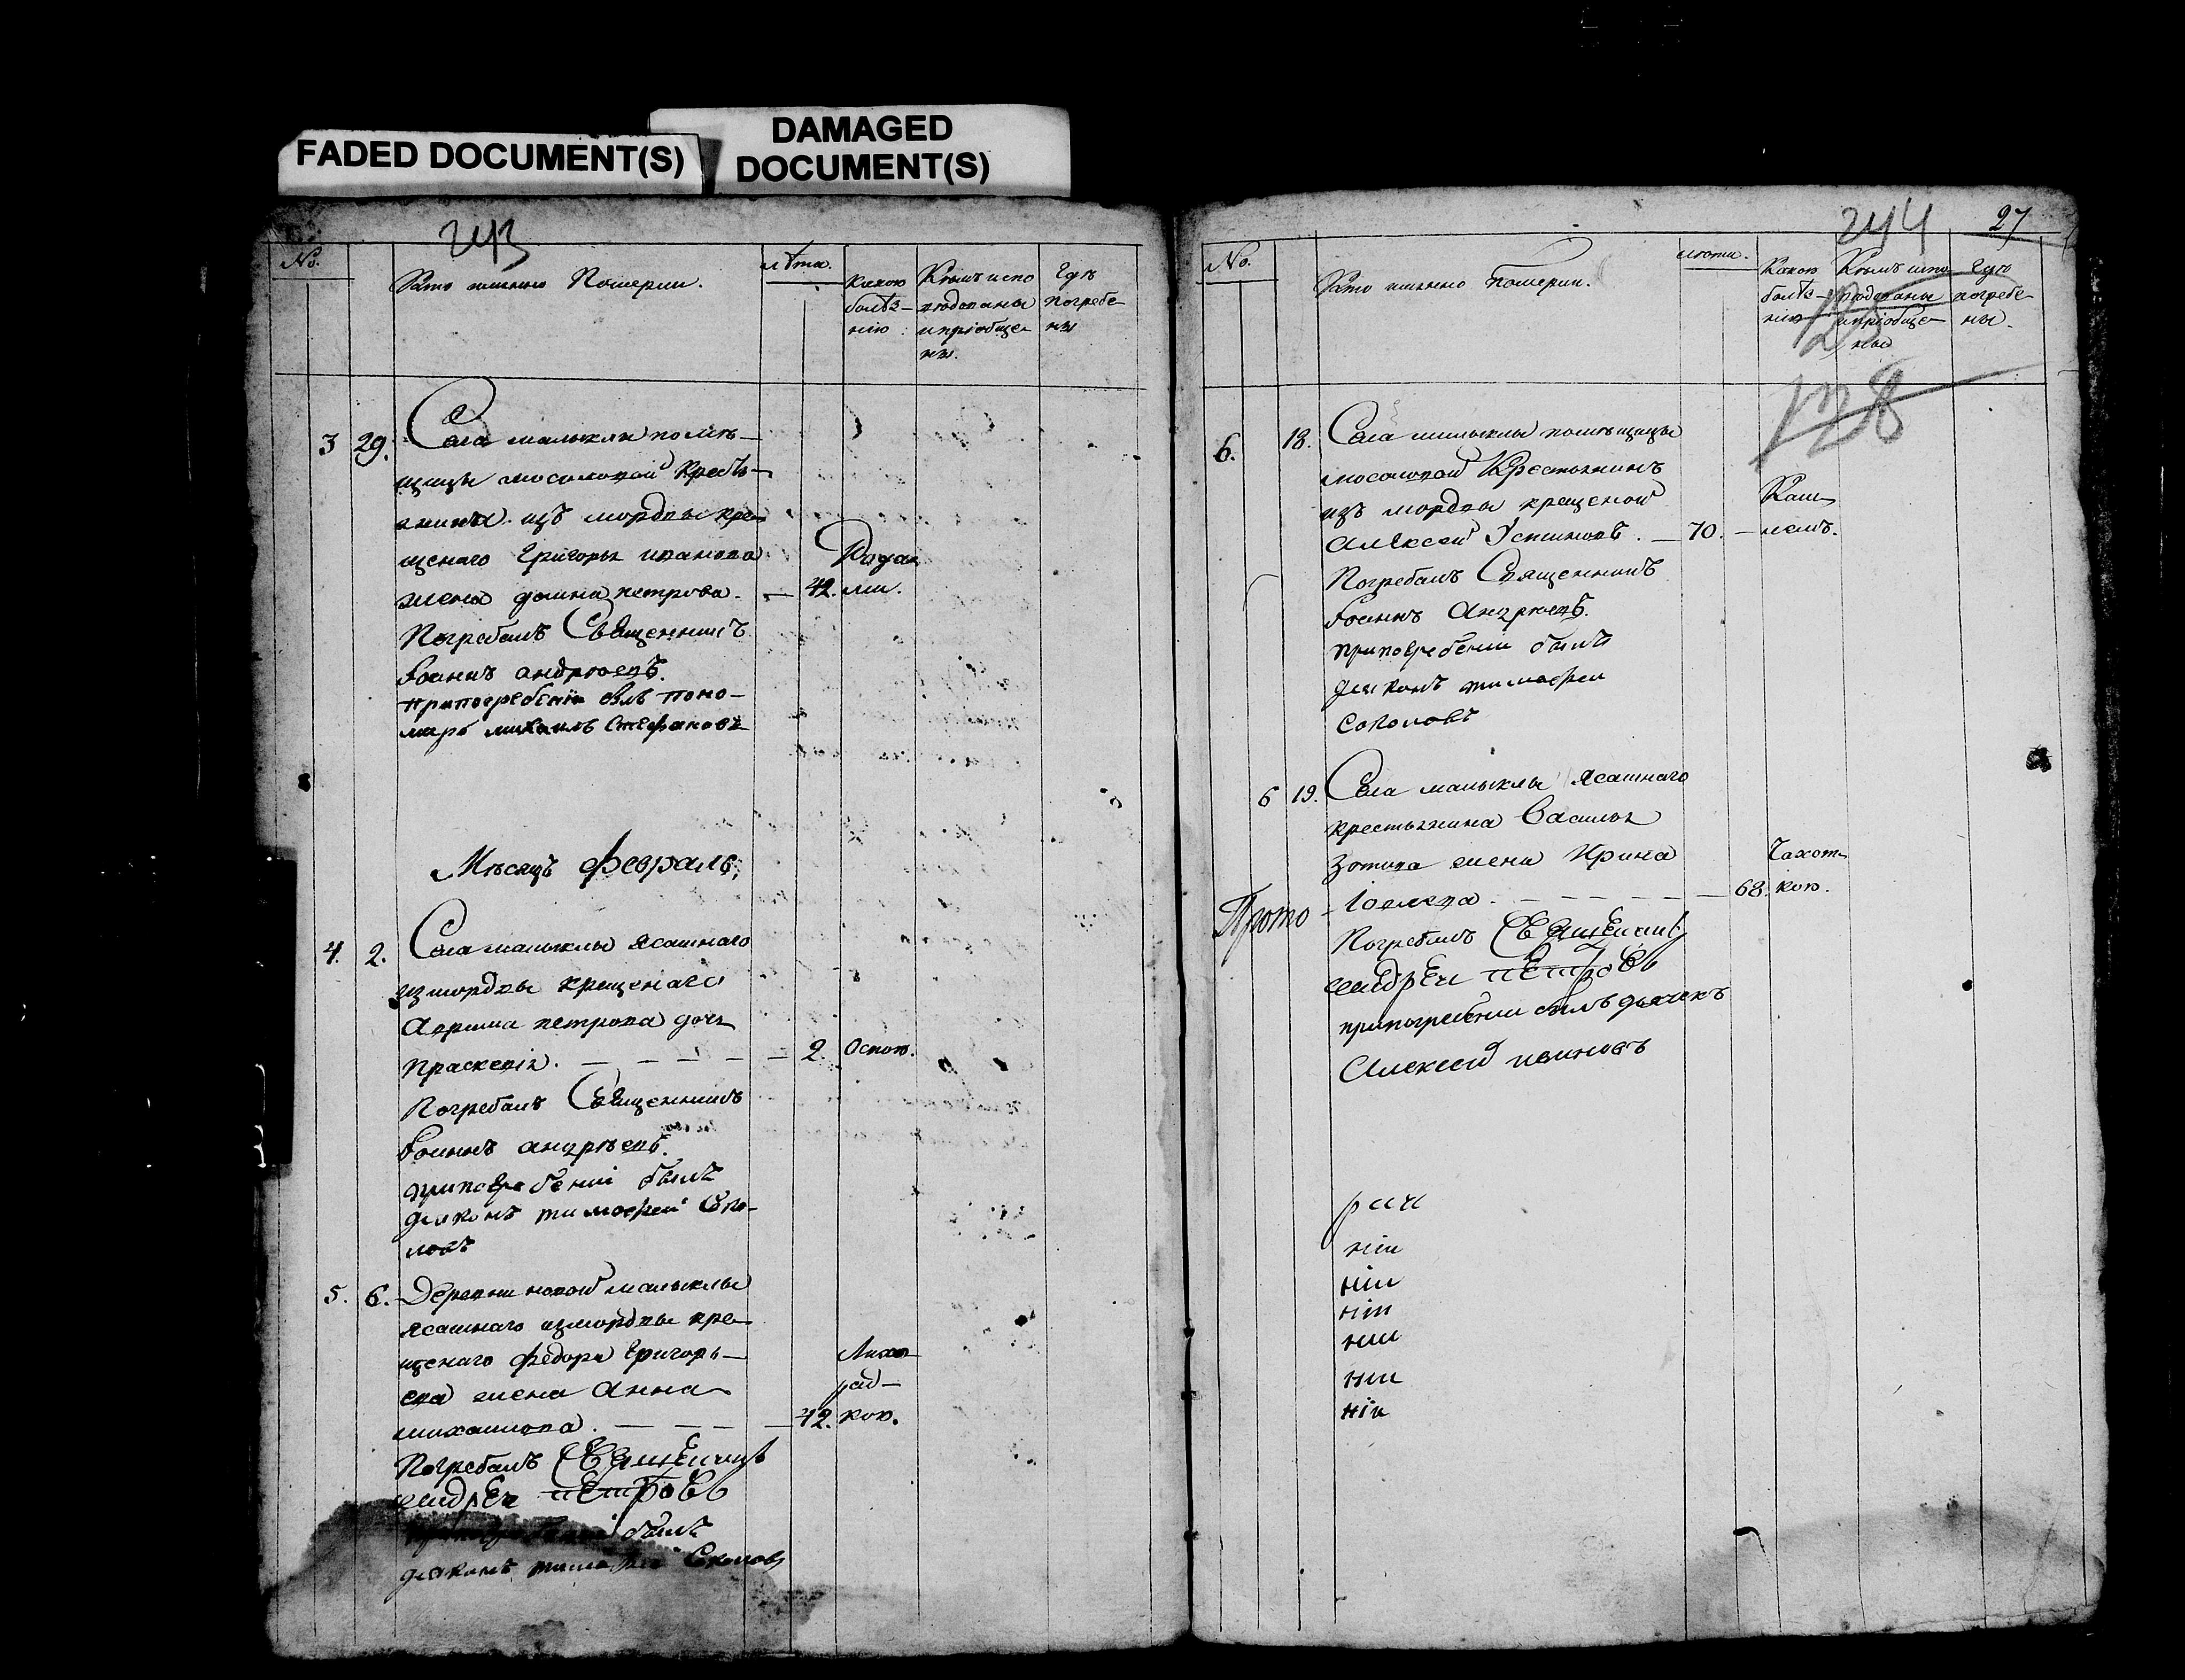 FADED DOCUMENT(S)
DAMAGED
DOCUMENT(S)
243
No.
Кто имянно Померли.
лѣта.
Какою
болѣз-
нію
Кѣмъ испо
вѣдованы
и пріобще-
ны.
Гдѣ
погребе-
ны
3 29. Села малыклы помѣ-
щицы мосоловой Кресть-
янина изъ мордвы кре-
щенаго Григорья иванова
жена домна петрова. — 42. Родa-
ми.
Погребалъ Священникъ
Іоаннъ андрѣевъ.
при погребеніи былъ поно-
марь михаилъ Стефановъ
Мѣсяцъ февраль,
4. 2. Села малыклы ясашнаго
измордвы крещенаго
петрова дочь
Праскевія. — — — — — 2. Оспою.
Погребалъ Священникъ
Іоаннъ андрѣевъ.
при погребеніи былъ
діаконъ тимофей Соко-
ловъ
5. 6. Деревни новой малыклы
ясашнаго измордвы кре-
щенаго федора Григорь-
ева жена Анна
михаилова. — — — — 42. Лихо-
рад-
кою.
Погребалъ Священникъ
андрей петровъ
былъ
діаконъ тимофей Соколовъ
244
27
No.
Кто имянно померли.
лѣта.
Какою
болѣз-
нію
Кѣмъ испо
вѣдованы
и пріобще-
ны
Гдѣ
погребе-
ны.
125
128
6. 18. Села малыклы помѣщицы
мосоловой Крестьянинъ
изъ мордвы крещеной
Алексей Устиновъ. — 70. — Каш-
лемъ.
Погребалъ Священникъ
Іоаннъ Андрѣевъ.
при погребеніи былъ
діаконъ тимофеи
Соколовъ
6 19. Села малыклы Ясашнаго
крестьянина Василья
Зотова жена Ирина
Іовлева. — — — — — 68. Чахот-
кою.
Прото-
Погребалъ Священникъ
андреи петровъ
при погребении былъ дьячекъ
Алексей ивановъ
рии
ніи
ніи
ніи
ніи
ніи
ніи